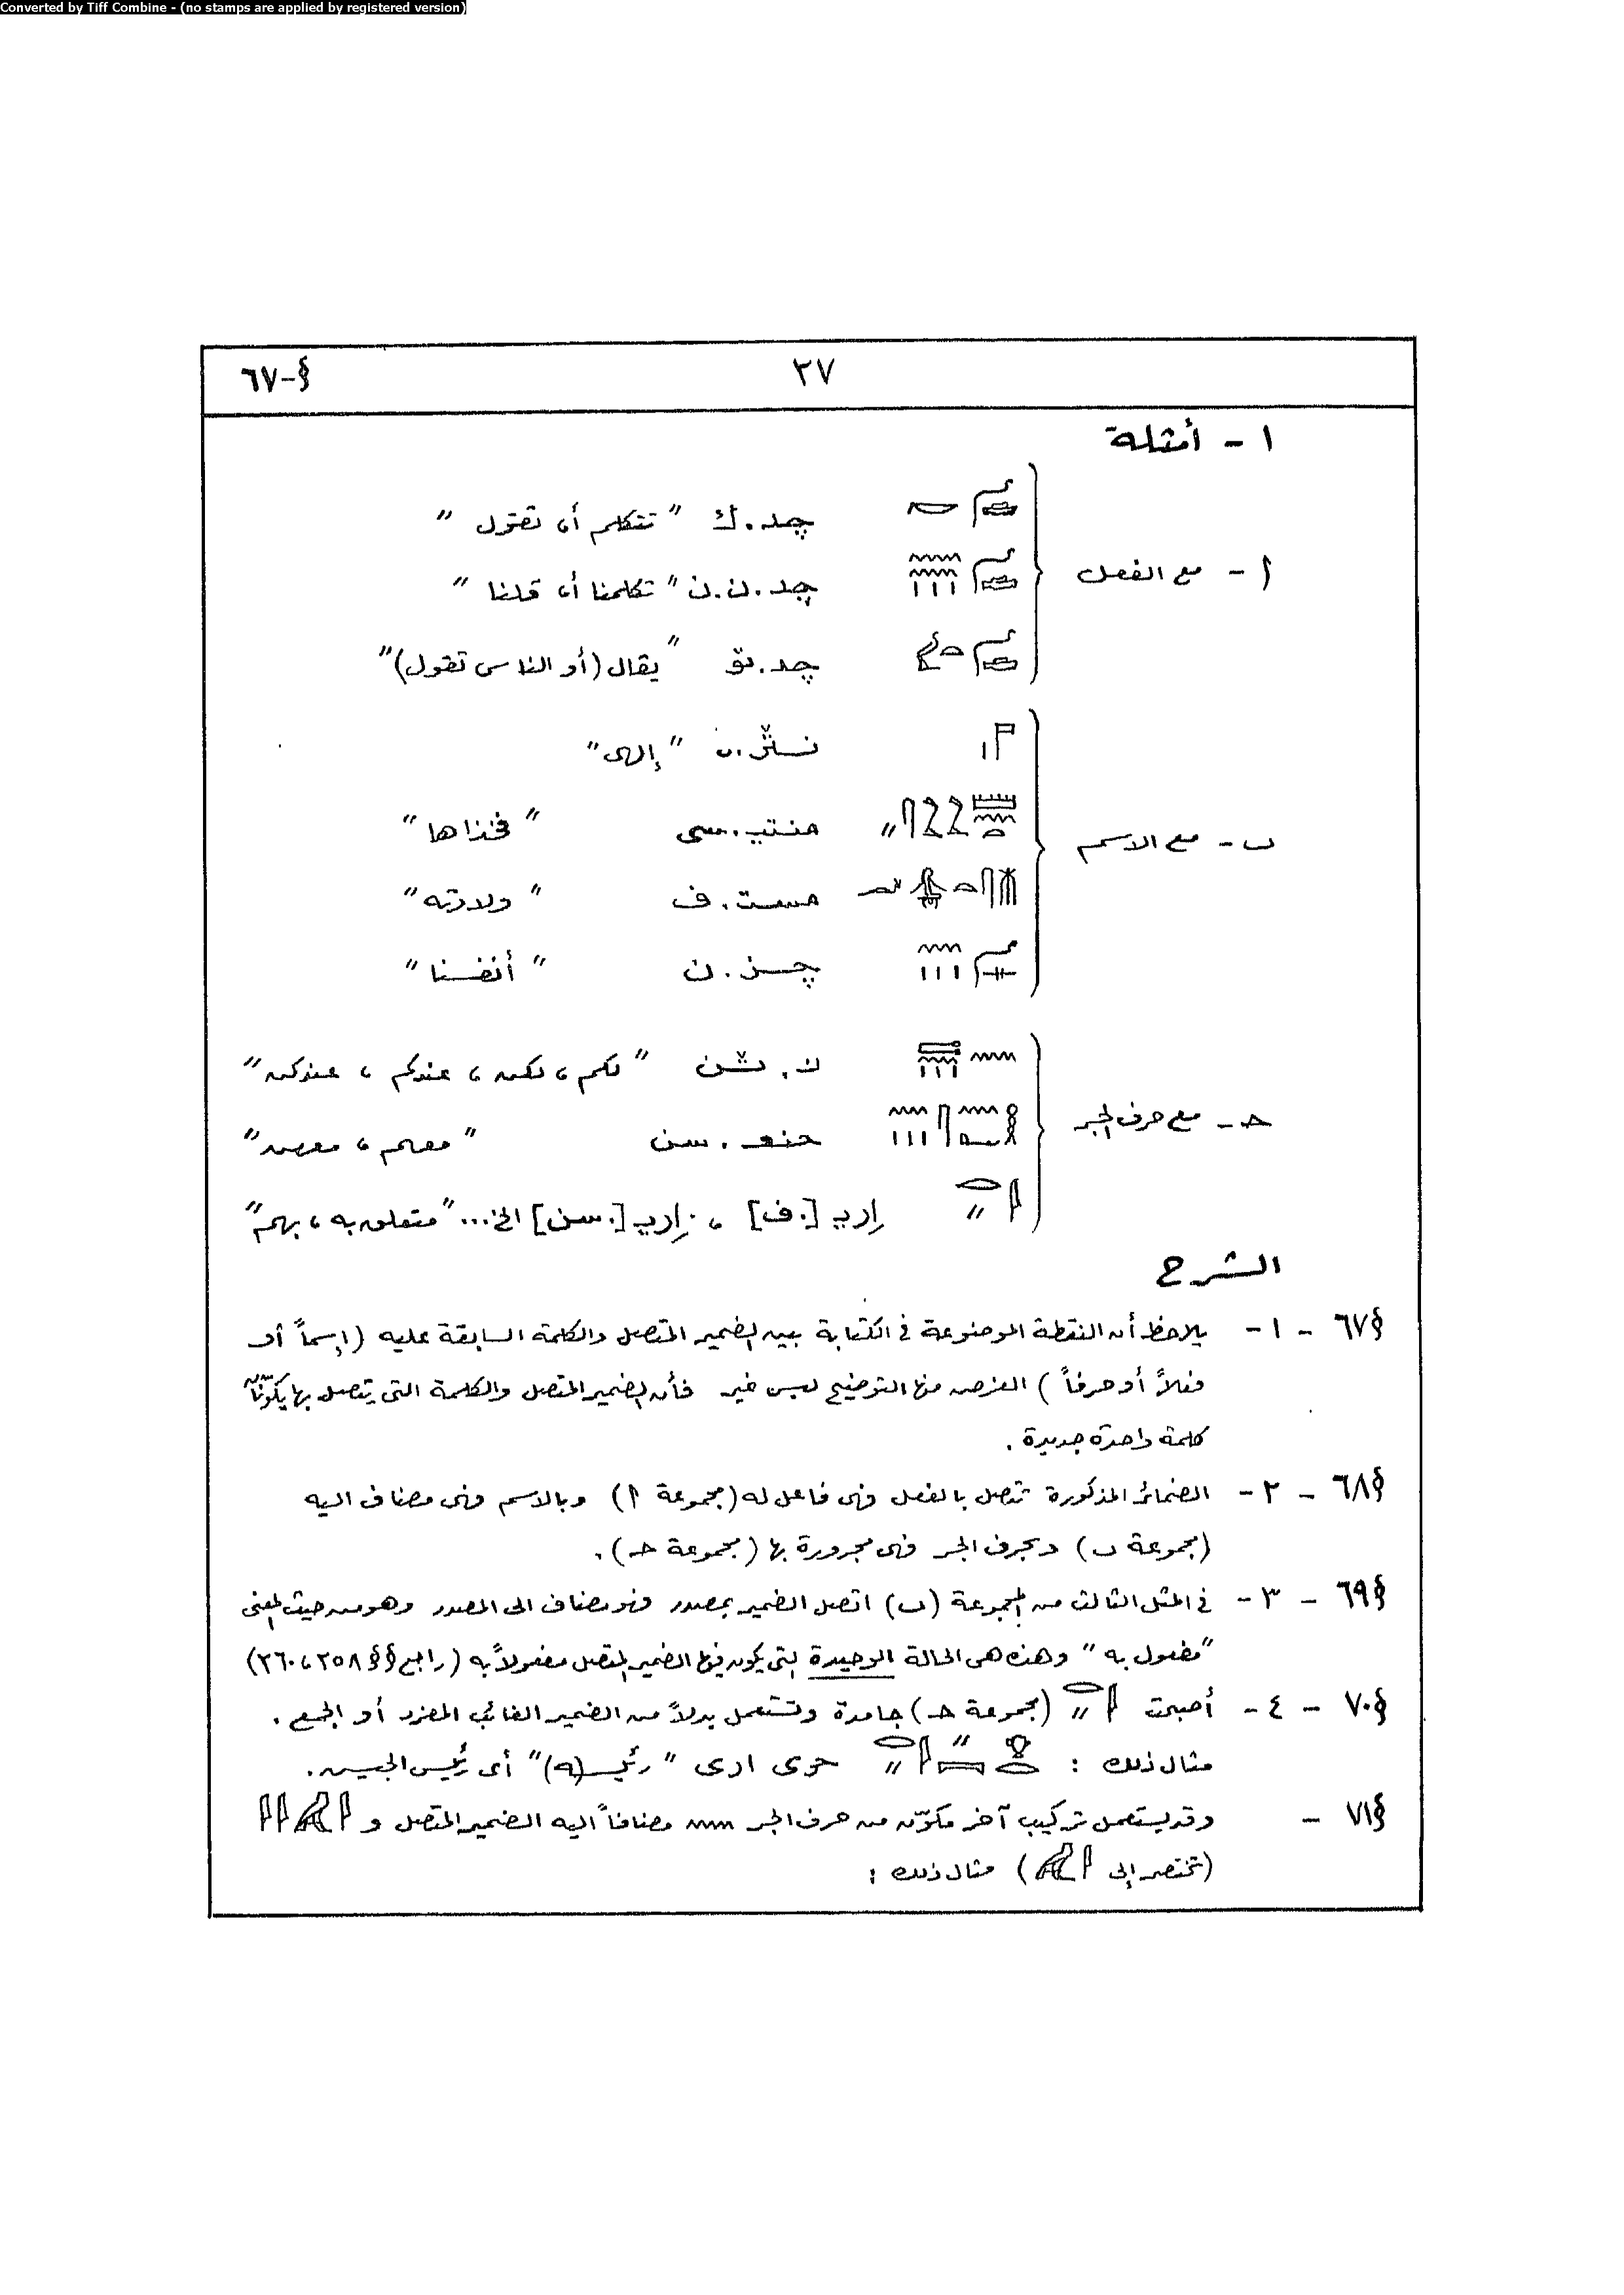 Converted by Tiff Combine - (no stamps are applied by registered version)
§-٦٧
٣٧
١ - أمثلة
أ - مع الفعل
چد.ك " تتكلم أى تقول "
چد.ن.ن " تكلمنا أى قلنا "
چد.تو " يقال (أو الناس تقول) "
ب - مع الاسم
" إلهى "
منتى.سى " فخذاها "
مست.ف " ولادته "
چس.ن " أنفسنا "
حـ - مع حرف الجر
ن.ثن " لكم ، لكن ، عندكم ، عندكن "
حنع.سن " معهم ، معهن "
إرى [.ف] ، إرى [.سن] الخ... " متعلق به ، بهم "
الشرح
§٦٧ - ١ - يلاحظ أن النقطة الموضوعة فى الكتابة بين الضمير المتصل والكلمة السابقة عليه (إسماً أو
فعلاً أو حرفاً) الغرض منها التوضيح ليس غير فأن الضمير المتصل والكلمة التى يتصل بها يكوّنان
كلمة واحدة جديدة .
§٦٨ - ٢ - الضمائر المذكورة تتصل بالفعل فهى فاعل له (مجموعة أ) وبالاسم فهى مضاف اليه
(مجموعة ب) وبحرف الجر فهى مجرورة بها (مجموعة حـ) .
§٦٩ - ٣ - فى المثل الثالث من المجموعة (ب) اتصل الضمير بمصدر فهو مضاف الى المصدر وهو من حيث المعنى
"مفعول به" وهذه هى الحالة الوحيدة التى يكون فيها الضمير المتصل مفعولاً به (راجع §§ ٢٥٨ ، ٢٦٠)
§٧٠ - ٤ - أصبحت (مجموعة حـ) جامدة وتستعمل بدلاً من الضمير الغائب المفرد أو الجمع .
مثال ذلك : حرى ارى " رئيسـ(ه) " أى رئيس الجيش .
§٧١ - وقد يستعمل تركيب آخر مكوّن من حرف الجر مضافاً اليه الضمير المتصل و
(تختصر إلى ) مثال ذلك :